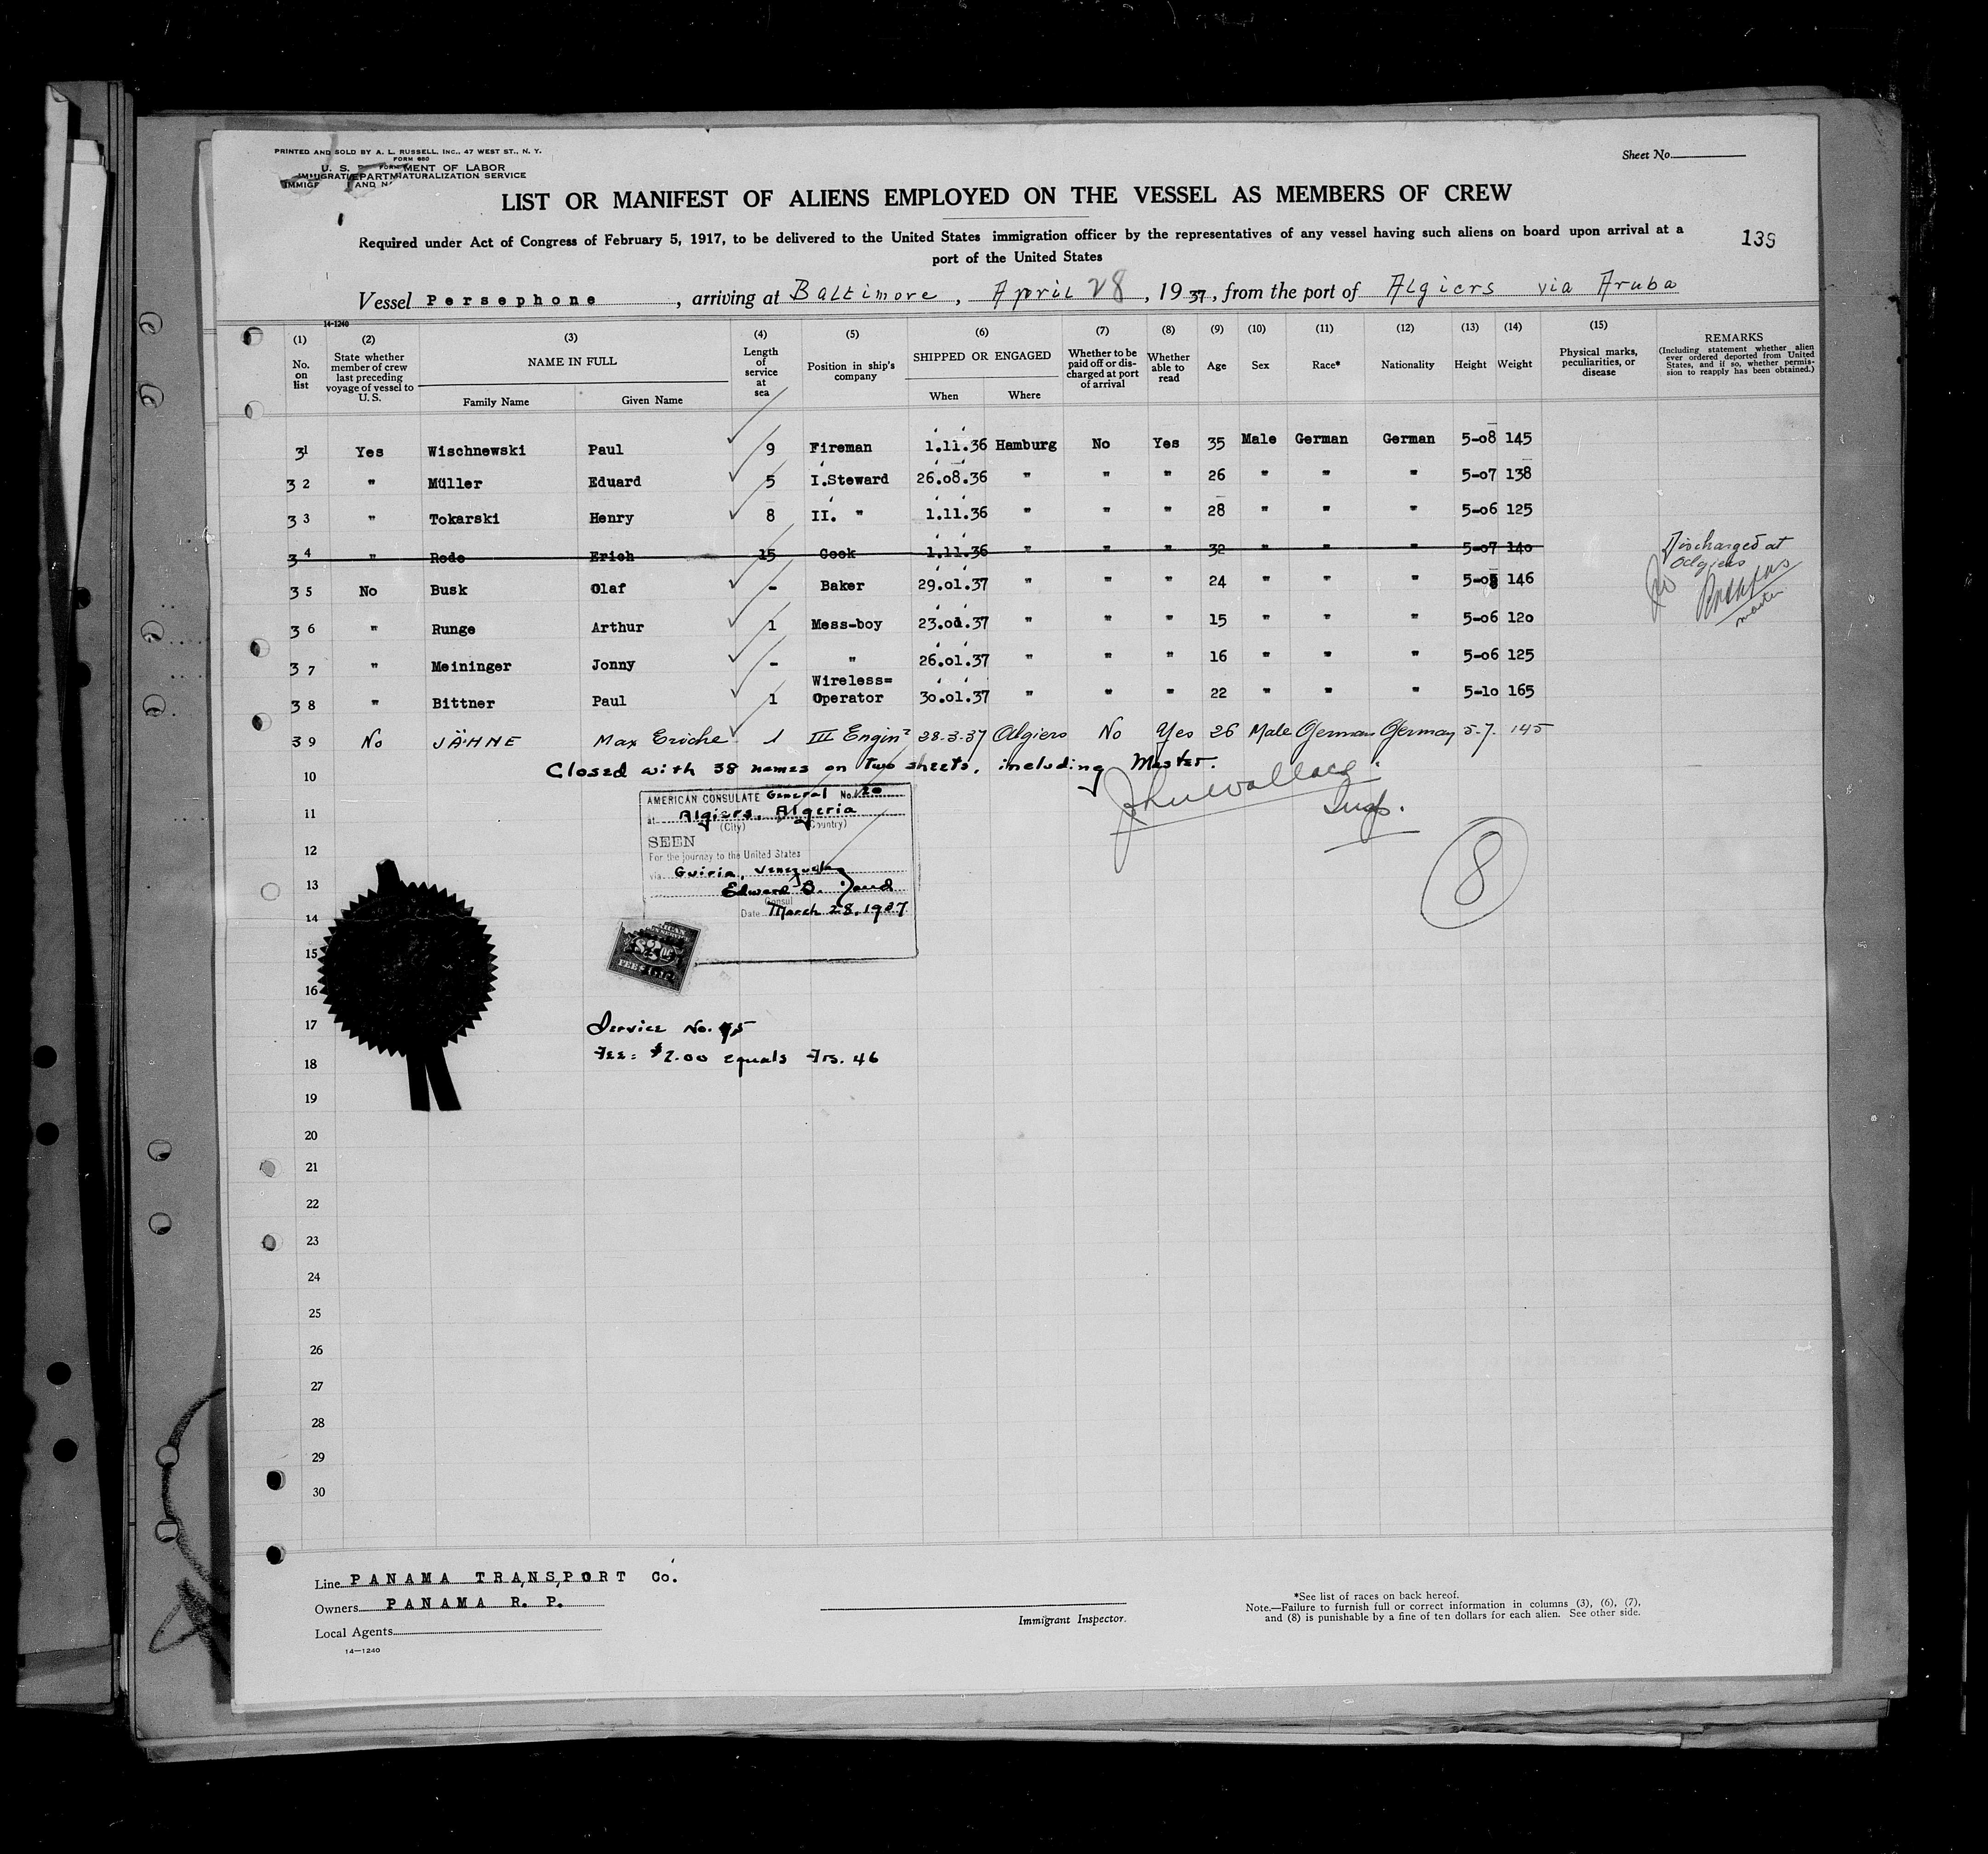 PRINTED AND SOLD BY A. L. RUSSELL, INC., 47 WEST ST., N. Y.
FORM 680
U. S. MENT OF LABOR
NATURALIZATION SERVICE
Sheet No.
LIST OR MANIFEST OF ALIENS EMPLOYED ON THE VESSEL AS MEMBERS OF CREW
Required under Act of Congress of February 5, 1917, to be delivered to the United States immigration officer by the representatives of any vessel having such aliens on board upon arrival at a
port of the United States
139
Vessel Persephone, arriving at Baltimore, April 28, 1937, from the port of Algiers via Aruba
14-1240
(1) No. on list
(2) State whether member of crew last preceding voyage of vessel to U. S.
(3) NAME IN FULL
Family Name Given Name
(4) Length of service at sea
(5) Position in ship's company
(6) SHIPPED OR ENGAGED
When Where
(7) Whether to be paid off or discharged at port of arrival
(8) Whether able to read
(9) Age
(10) Sex
(11) Race*
(12) Nationality
(13) Height
(14) Weight
(15) Physical marks, peculiarities, or disease
REMARKS
(Including statement whether alien ever ordered deported from United States, and if so, whether permission to reapply has been obtained.)
31 Yes Wischnewski Paul 9 Fireman 1.11.36 Hamburg No Yes 35 Male German German 5-08 145
32 " Müller Eduard 5 I.Steward 26.08.36 " " " 26 " " " 5-07 138
33 " Tokarski Henry 8 II. " 1.11.36 " " " 28 " " " 5-06 125
34 " Rode Erich 15 Cook 1.11.36 " " " 32 " " " 5-07 140 Discharged at Algiers
master
35 No Busk Olaf - Baker 29.01.37 " " " 24 " " " 5-05 146
36 " Runge Arthur 1 Mess-boy 23.01.37 " " " 15 " " " 5-06 120
37 " Meininger Jonny - " 26.01.37 " " " 16 " " " 5-06 125
38 " Bittner Paul 1 Wireless=Operator 30.01.37 " " " 22 " " " 5-10 165
39 No JÄHNE Max Eriche 1 III Engin 28-3-37 Algiers No Yes 26 Male German German 5-7. 145
10 Closed with 38 names on two sheets, including Master.
John Wallace
Insp.
8
AMERICAN CONSULATE General No. 120
at Algiers, Algeria
(City) (Country)
SEEN
For the journey to the United States
via Guiria, Venezuela
Edward D.
Consul
Date March 28, 1937
11
12
13
14
15
16
17
Service No. 95
Fee: $2.00 equals Frs. 46
18
19
20
21
22
23
24
25
26
27
28
29
30
Line PANAMA TRANSPORT Co.
Owners PANAMA R. P.
Local Agents
14—1240
Immigrant Inspector.
*See list of races on back hereof.
Note.—Failure to furnish full or correct information in columns (3), (6), (7),
and (8) is punishable by a fine of ten dollars for each alien. See other side.